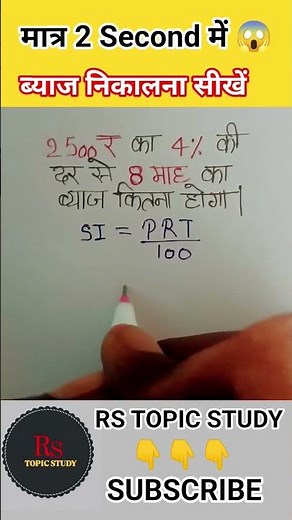 मात्र 2 Second में 😱
ब्याज निकालना सीखें
2500₹ का 4% की
दर से 8 माह का
ब्याज कितना होगा।
SI = PRT
100
RS TOPIC STUDY
👇👇👇
SUBSCRIBE
Rs
TOPIC STUDY